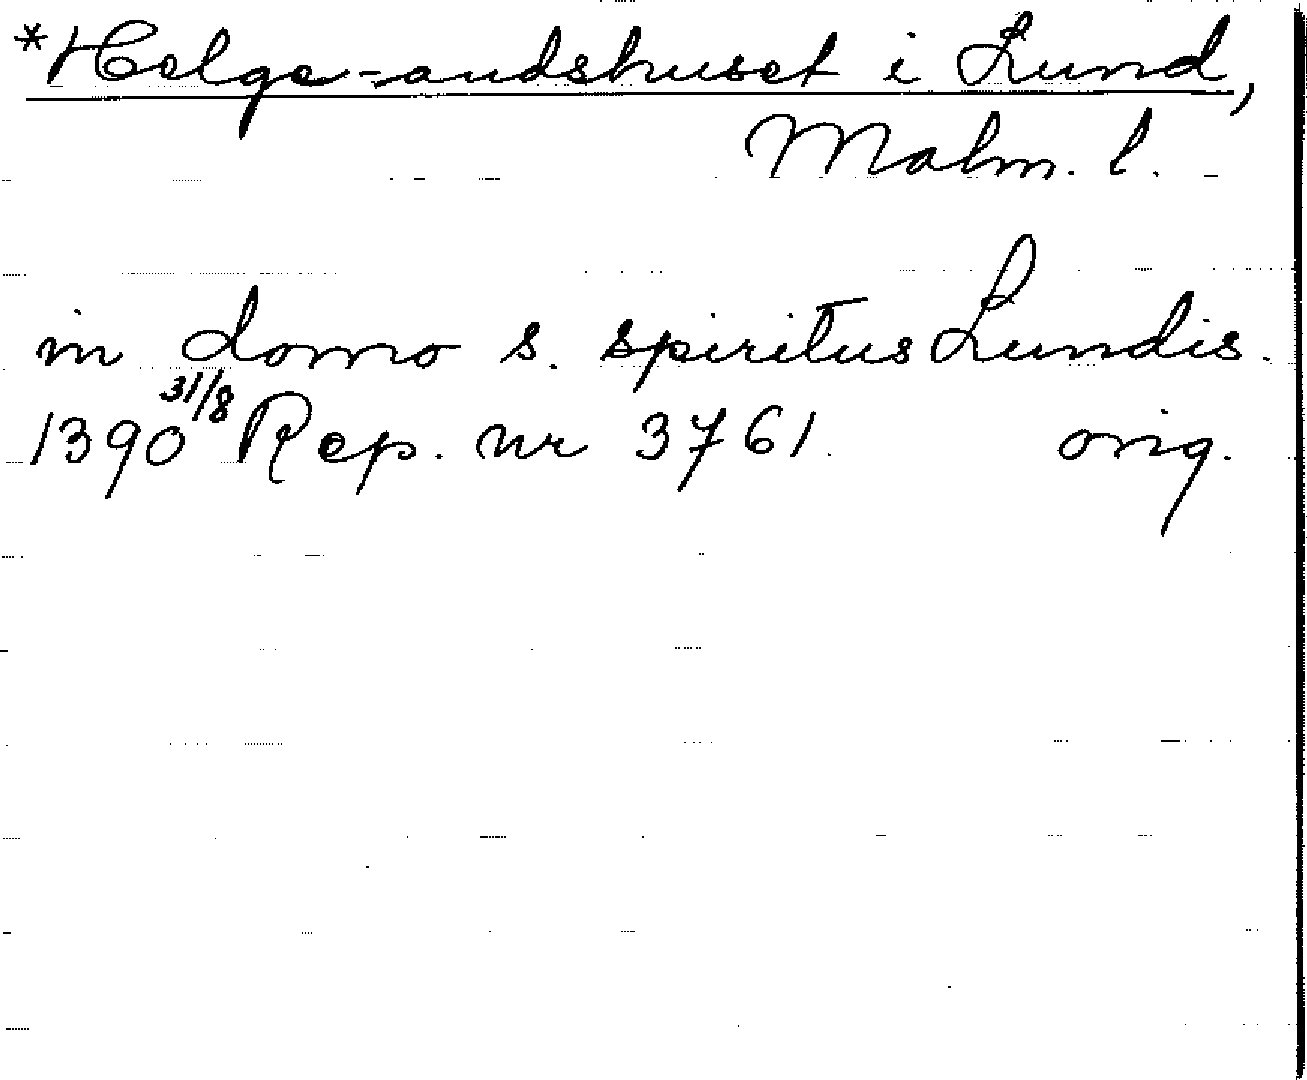 *Helge-andshuset i Lund,
Malm. l.
in domo s. spiritus Lundis.
1390 31/8 Rep. nr 3761. orig.